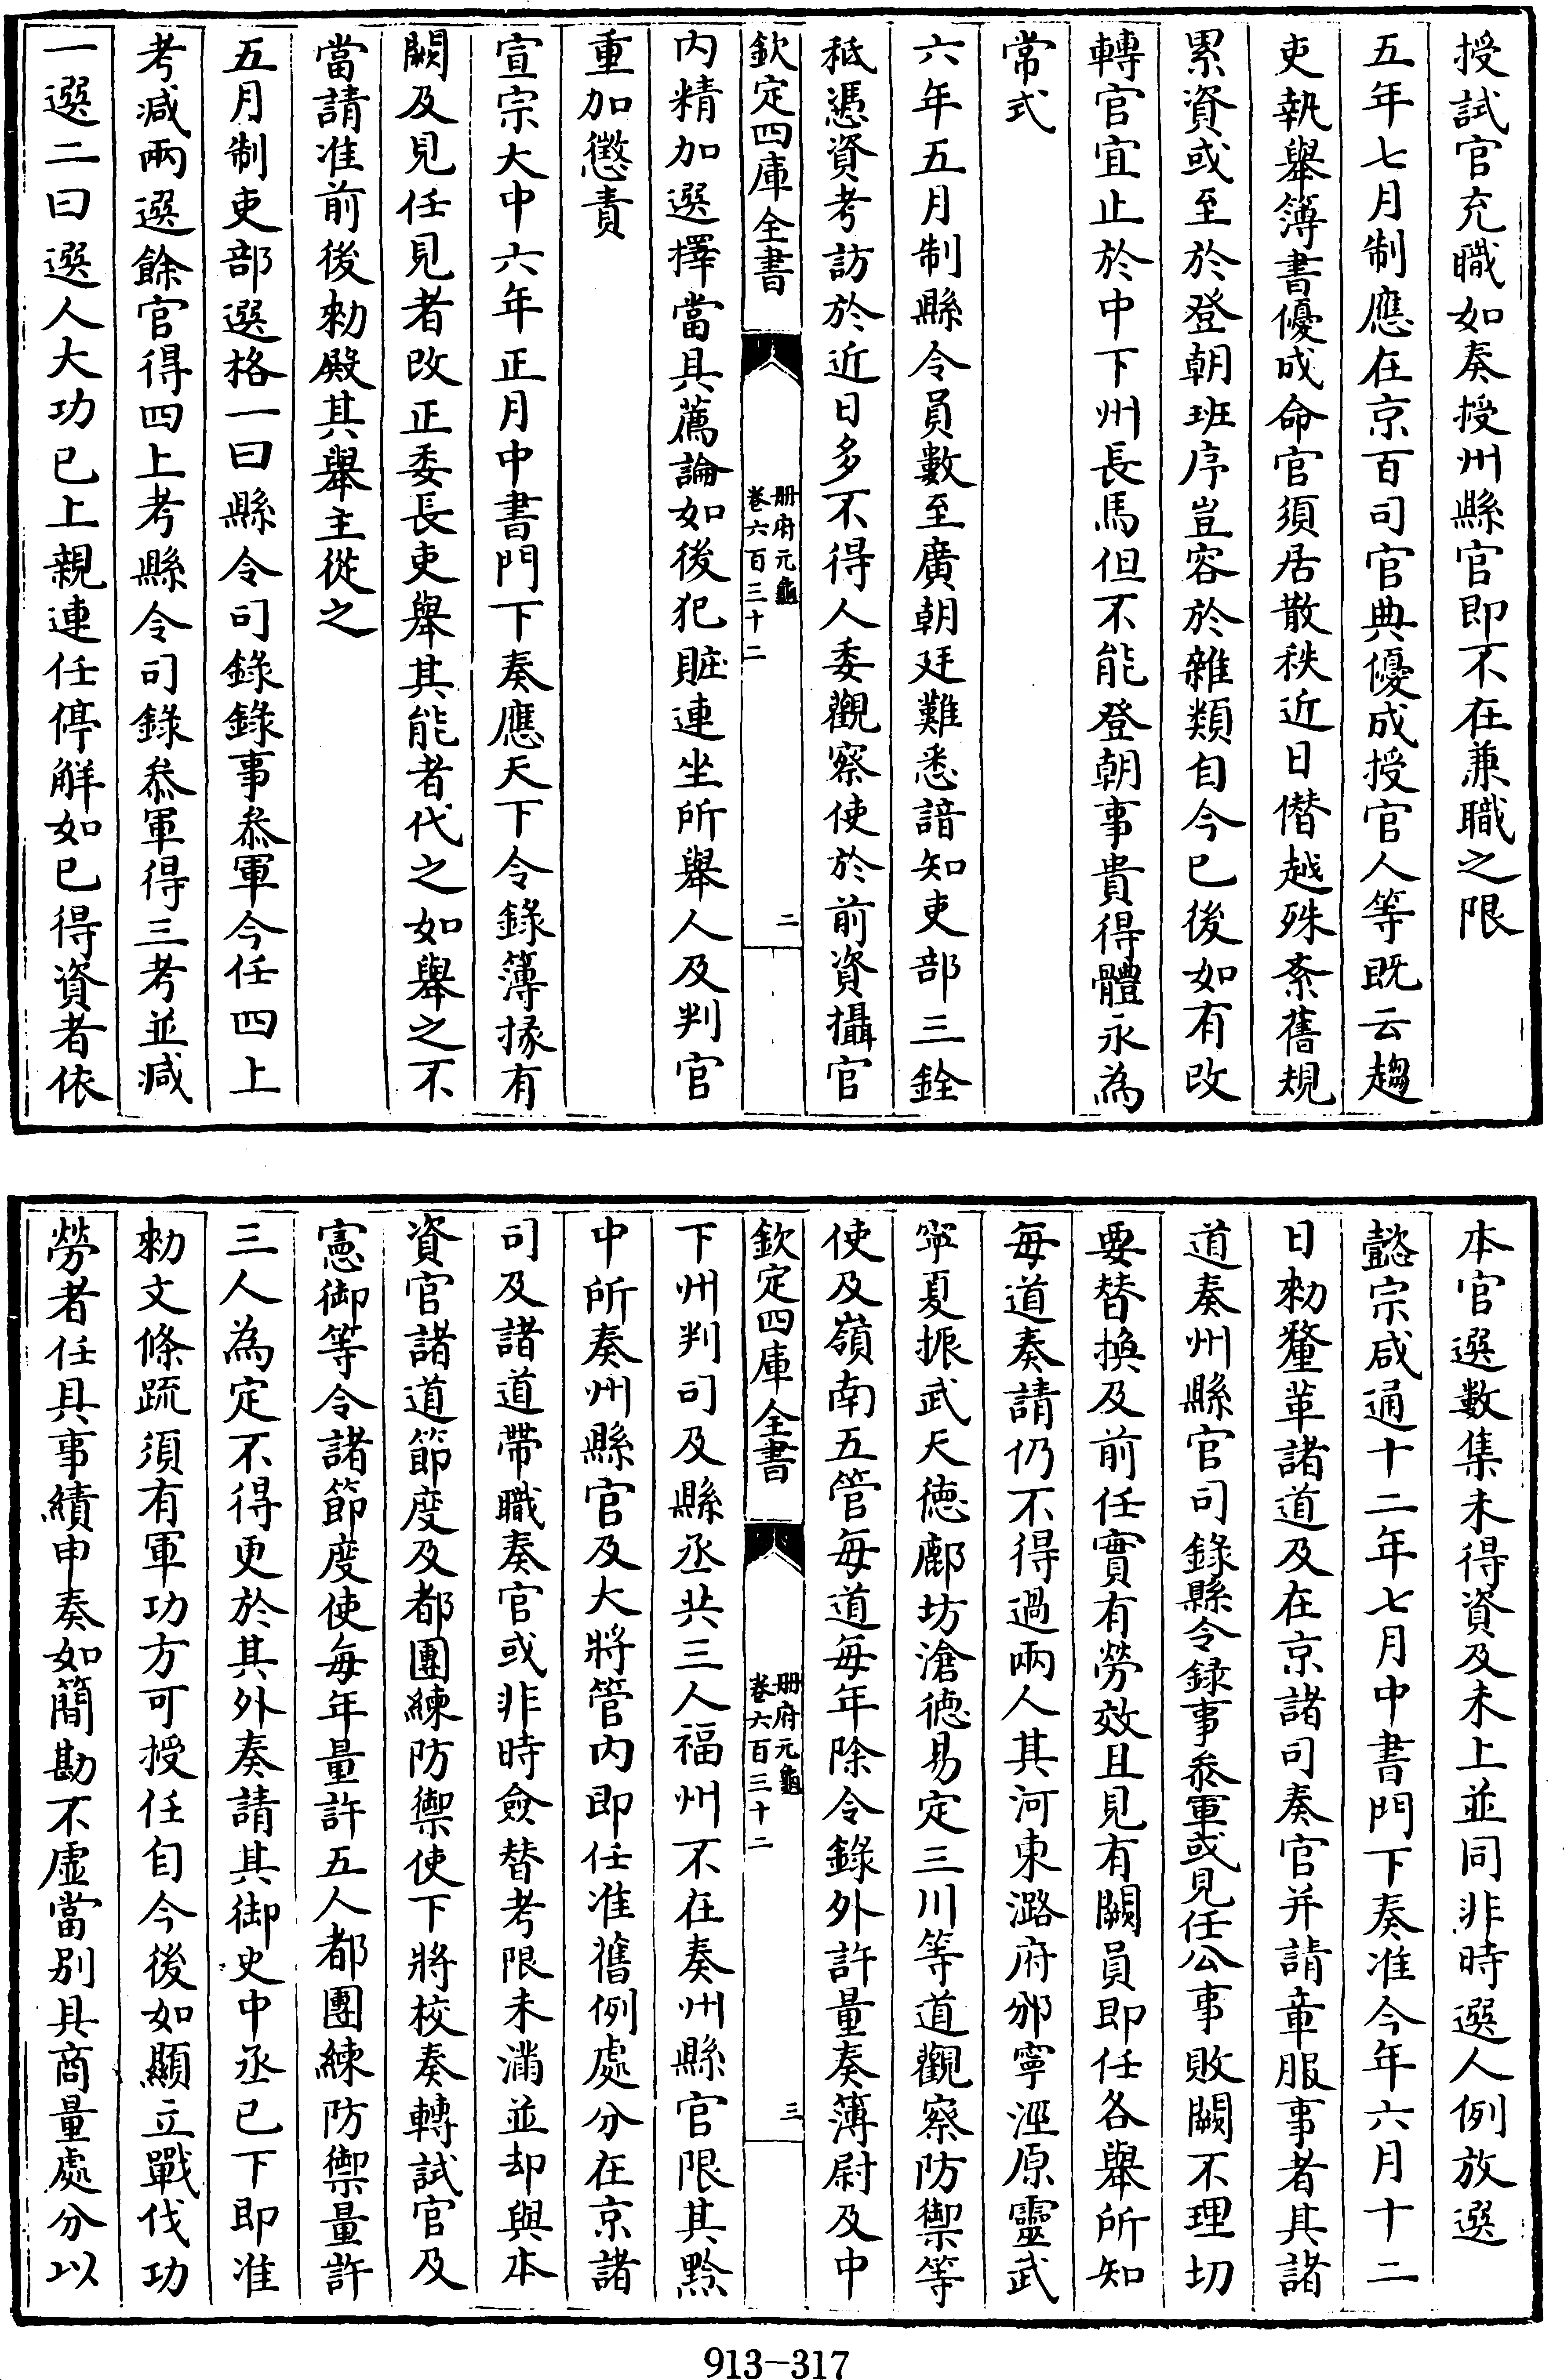 授試官充職如奏授州縣官即不在兼職之限
五年七月制應在京百司官典優成授官人等既云趨
吏執舉簿書優成命官須居散秩近日僭越殊紊舊規
累資或至於登朝班序豈容於雜類自今已後如有改
轉官宜止於中下州長馬但不能登朝事貴得體永為
常式
六年五月制縣令員數至廣朝廷難悉諳知吏部三銓
秪憑資考訪於近日多不得人委觀察使於前資攝官
欽定四庫全書
冊府元龜
卷六百三十二
二
内精加選擇當具薦論如後犯贓連坐所舉人及判官
重加懲責
宣宗大中六年正月中書門下奏應天下令錄簿掾有
闕及見任見者改正委長吏舉其能者代之如舉之不
當請准前後勑殿其舉主從之
五月制吏部選格一曰縣令司錄錄事叅軍今任四上
考減兩選餘官得四上考縣令司錄叅軍得三考並減
一選二曰選人大功已上親連任停解如已得資者依
本官選數集未得資及未上並同非時選人例放選
懿宗咸通十二年七月中書門下奏准今年六月十二
日勑釐革諸道及在京諸司奏官并請章服事者其諸
道奏州縣官司錄縣令錄事叅軍或見任公事敗闕不理切
要替換及前任實有勞效且見有闕員即任各舉所知
每道奏請仍不得過兩人其河東潞府邠寧涇原靈武
寧夏振武天德鄜坊滄德易定三川等道觀察防禦等
使及嶺南五管每道每年除令錄外許量奏簿尉及中
欽定四庫全書
冊府元龜
卷六百三十二
三
下州判司及縣丞共三人福州不在奏州縣官限其黔
中所奏州縣官及大將管内即任准舊例處分在京諸
司及諸道帶職奏官或非時僉替考限未滿並却與本
資官諸道節度及都團練防禦使下將校奏轉試官及
憲御等令諸節度使每年量許五人都團練防禦量許
三人為定不得更於其外奏請其御史中丞已下即准
勑文條疏須有軍功方可授任自今後如顯立戰伐功
勞者任具事績申奏如簡勘不虛當別具商量處分以
913-317